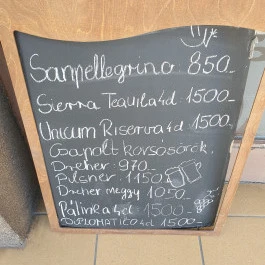 Sanpellegrino 850.-
Sierra Tequila 4d. 1500.-
Unicum Riserva 4d 1500.-
Csapolt korsósörök:
Dreher - 970.-
Pilsner - 1150.-
Dreher meggy 1050.-
Pálinka 4cl 1500.-
DIPLOMATICO 4cl 1500.-